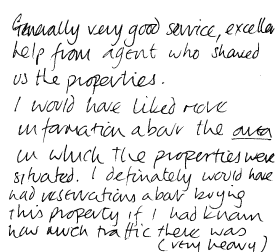 Generally very good service, excellen
help from agent who showed
us the properties.
I would have liked more
information about the area
in which the properties were
situated. I definately would have
had reservations about buying
this property if I had known
how much traffic there was
(very heavy)